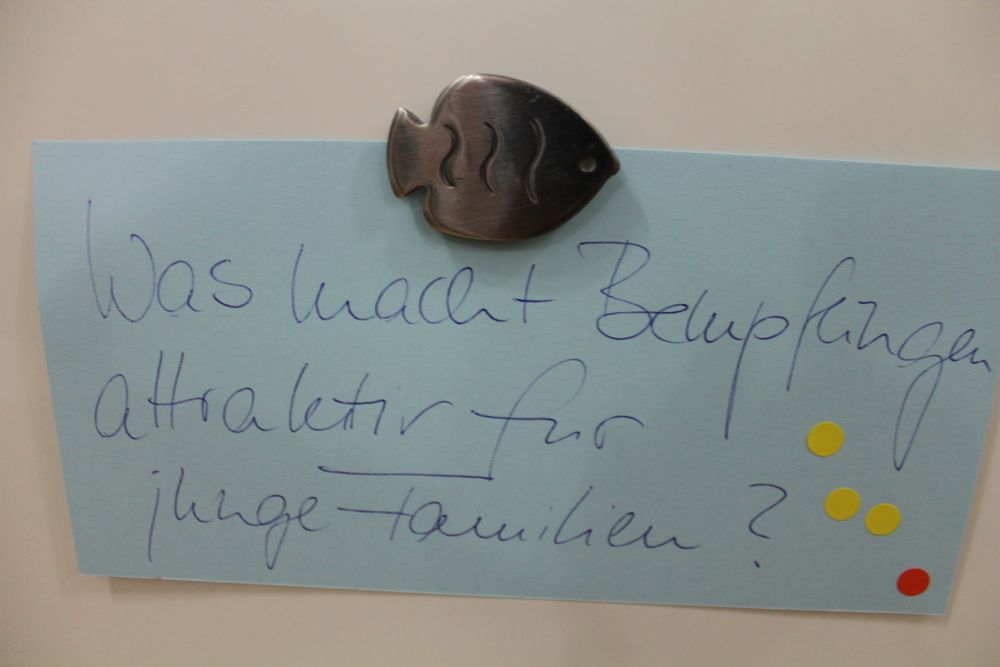 Was macht Bempflingen
attraktiv für
junge Familien?